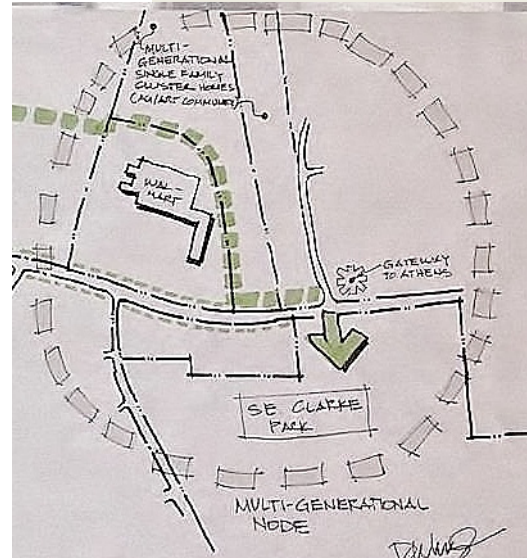 MULTI-
GENERATIONAL
SINGLE FAMILY
CLUSTER HOMES
(AG/ART COMMUNITY)
WAL-
MART
GATEWAY
TO ATHENS
SE CLARKE
PARK
MULTI-GENERATIONAL
NODE